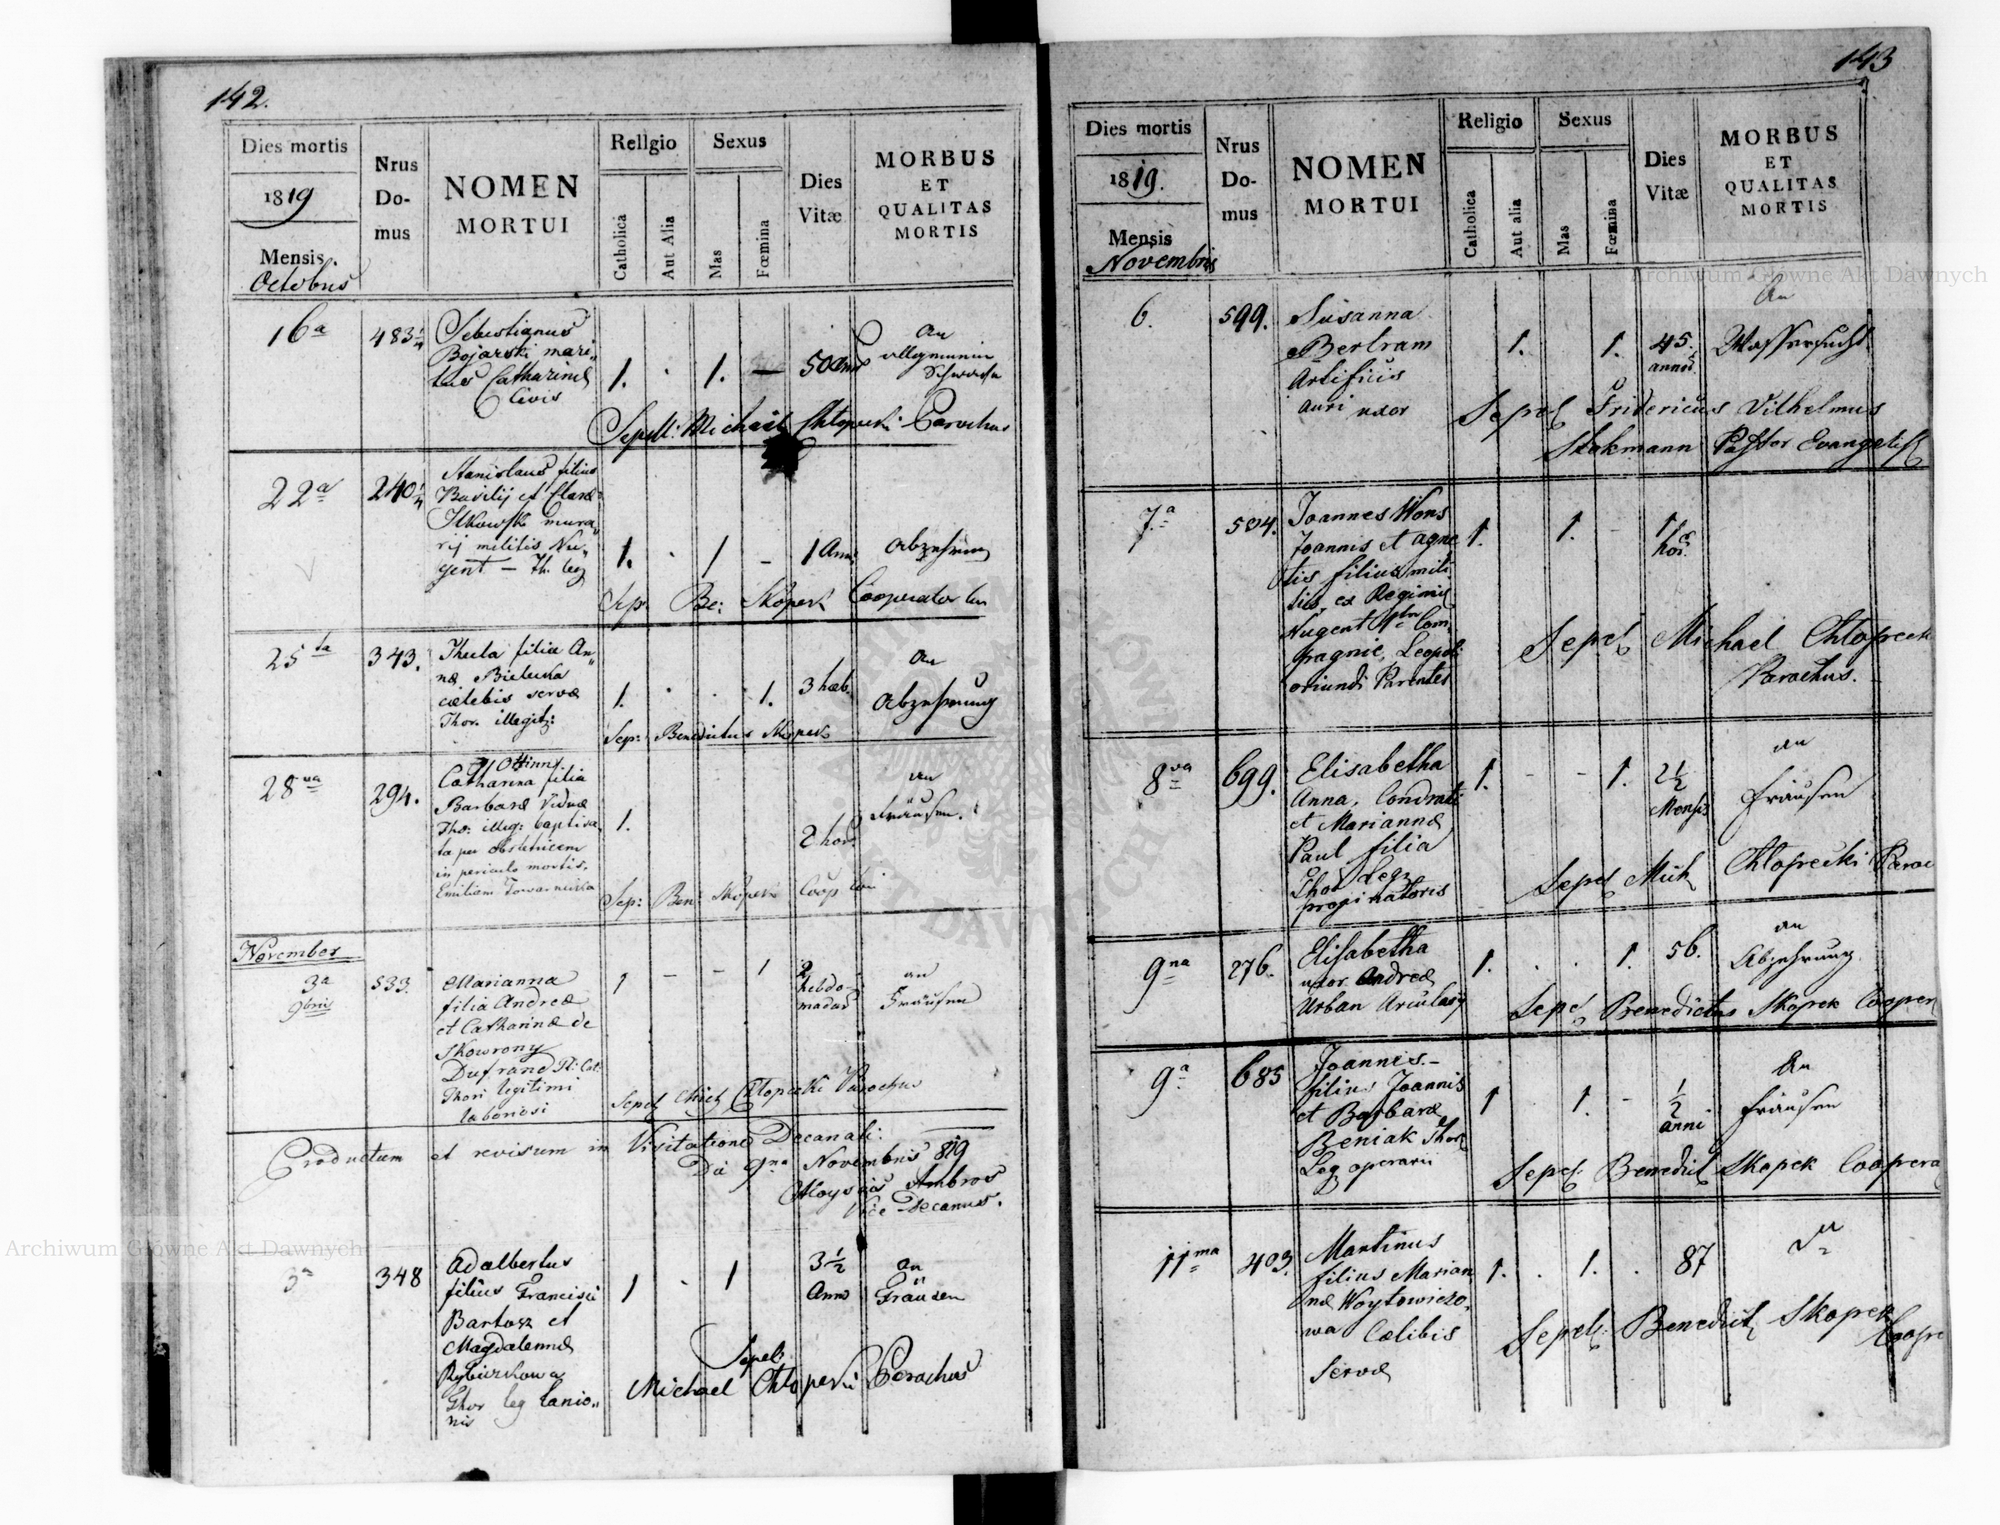 142.
Dies mortis
1819
Mensis
Octobris
Nrus
Do-
mus
NOMEN
MORTUI
Religio
Catholica
Aut Alia
Sexus
Mas
Fœmina
Dies
Vitæ
MORBUS
ET
QUALITAS
MORTIS
16a
483 1/4
Sebestianus
Bojarski mari„
tus Catharinæ
Civis
1. . 1. —
50 Ann
an
allgemeiner
Schwäche
Sepell: Michael Chlopecki Parochus
22a
240 1/4
Stanislaus filius
Basilij et Claræ
Ilkowski mura„
rij militis Nu„
gent — Th. leg
1. . 1 –
1 Ann
Abzehrung
Sep. Be: Skopek Cooperator
25ta
343.
Thecla filia An„
næ Bielecka
cælebis servæ
Thor. illegit:
1. . . 1.
3 heb.
an
Abzehrung
Sep: Benedictus Skopek
28va
294.
Catharina filia
Barbaræ Viduæ
Tho: illeg: baptisa
ta per obstetricem
in periculo mortis.
1.
2 hor.
an
Fräusen.
Sep: Ben: Skopek Coop
November
3a
9bris
533.
Marianna
filia Andreæ
et Catharinæ de
Skowrony
Dufrane
Thori legitimi
laboriosi
1 – – 1
2
hebdo-
madar
an
Fräusen
Sepel Mich Chlopecki Parochus
Productum et revisum in Visitatione Decanali
Die 9na Novembris 819
Aloysius Ambros
Vice Decanus.
5a
348
Adalbertus
filius Francisci
Bartosz et
Magdalennæ
Thor leg Lanio„
nis
1 . 1
3 1/2
Ann
an
Fräusen
Sepel:
Michael Chlopecki Parochus
143
Dies mortis
1819.
Mensis
Novembris
Nrus
Do-
mus
NOMEN
MORTUI
Religio
Catholica
Aut alia
Sexus
Mas
Fœmina
Dies
Vitæ
MORBUS
ET
QUALITAS
MORTIS
6.
599.
Susanna
Bertram
Artificis
auri uxor
1. 1.
45.
annor.
An
Wassersucht
Sepel Fridericus Vilhelmus
Stokmann Pastor Evangelis
7a
504.
Joannes Wons
Joannis et Agne
tis filius mili
tis, ex Regimine
Nugent
pagnie, Leopoli
oriundi Parentes
1. 1. -
1
hor.
Sepel Michael Chlopecki
Parochus.
8va
699.
Elisabetha
Anna, Condrati
et Mariannæ
Paul filia
Thor Leg
propinatoris
1. - - 1.
2 1/2
Mensis
an
Fräusen
Sepel Mich Chlopecki Paroc
9na
276.
Elisabetha
uxor Andreæ
Urban Arcularij
1. . . 1.
56.
an
Abzehrung
Sepel Benedictus Skopek Cooper
9a
685
Joannes.–
filius Joannis
et Barbaræ
Beniak Thor
Leg operarii
1 . 1. -
1/2
anni
An
Fräusen
Sepel Benedict Skopek Coopera
11ma
403.
Martinus
filius Marian
næ Woytowiczo.
wa Cælibis
Servæ
1. . 1. .
87
Sepel: Benedict Skopek
Coope
Archiwum Główne Akt Dawnych
Archiwum Główne Akt Dawnych